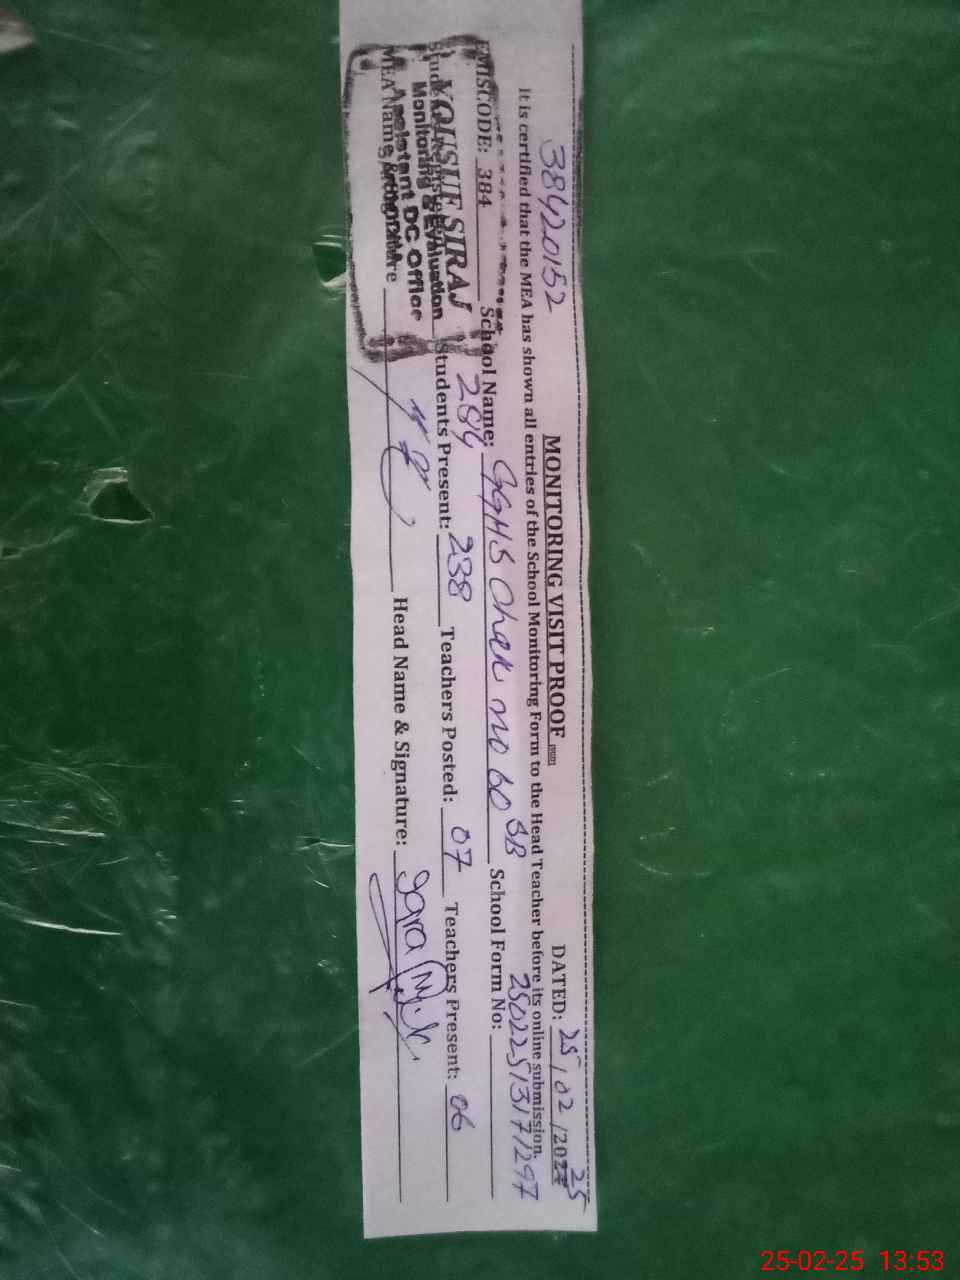 38420152
MONITORING VISIT PROOF
DATED: 25/02/2025
It is certified that the MEA has shown all entries of the School Monitoring Form to the Head Teacher before its online submission.
EMISCODE: 384 School Name: GGHS Chak no 60 SB School Form No: 25022513171297
Students Registered 284 Students Present: 238 Teachers Posted: 07 Teachers Present: 06
MEA Name & Signature Head Name & Signature:
YOUSUF SIRAJ
Monitoring & Evaluation
Assistant DC Office
SARGODHA
25-02-25 13:53